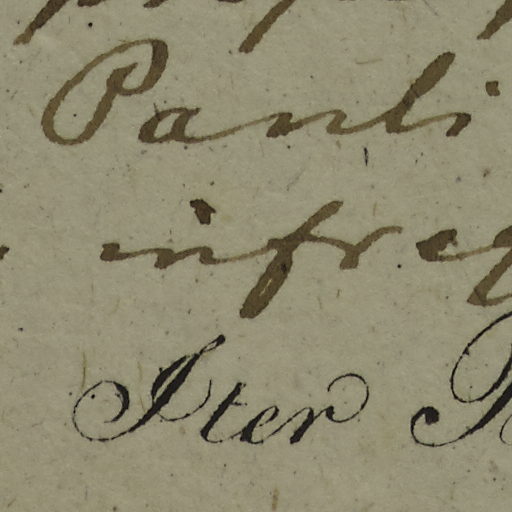 Pauli
infreq
Iter